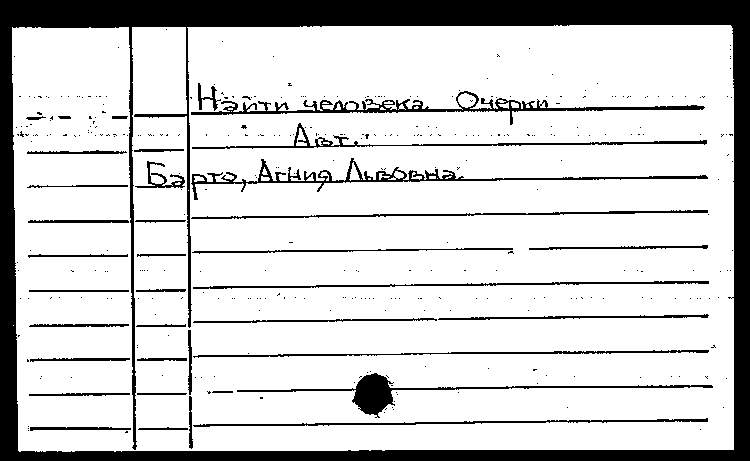 Найти человека. Очерки
Авт.:
Барто, Агния Львовна.